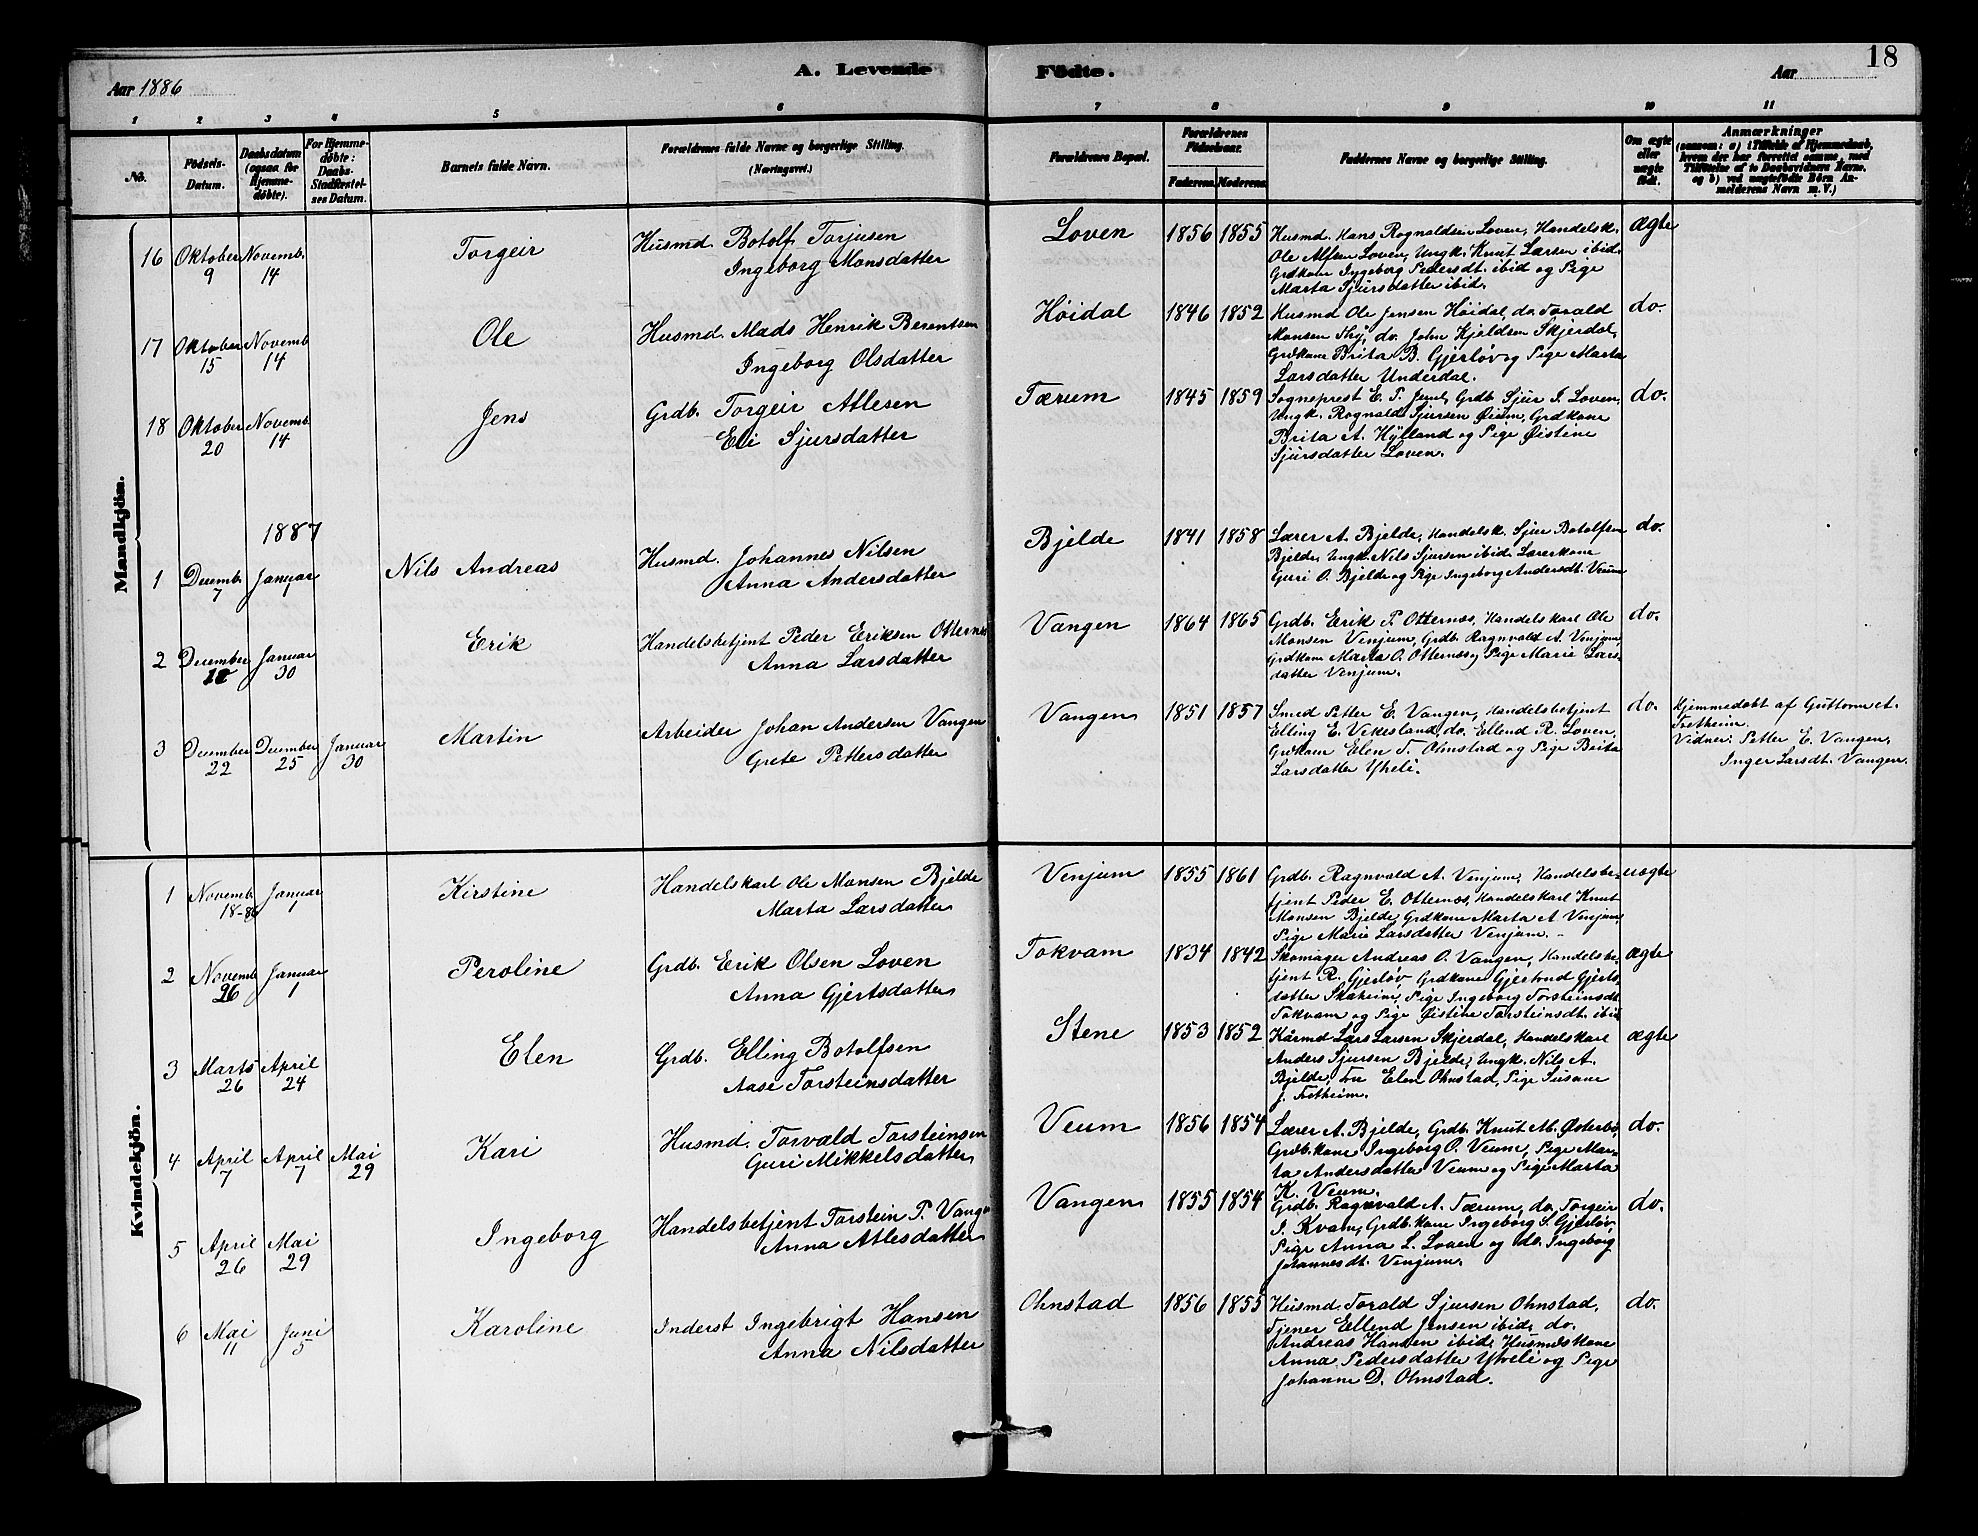 A. Levende Fødte.
18
Aar 1886
Aar
1 2 3 4 5 6 7 8 9 10 11
No.
Födsels-Datum.
Daabsdatum (ogsaa for Hjemme-døbte).
For Hjemme-døbte: Daabs-Stadfæstel-ses Datum.
Barnets fulde Navn.
Forældrenes fulde Navne og borgerlige Stilling.
(Næringsvei.)
Forældrenes Bopæl.
Forældrenes Födselsaar.
Faderens. Moderens.
Faddernes Navne og borgerlige Stilling.
Om ægte eller uægte födt.
Anmærkninger
(saasom: a) i Tilfælde af Hjemmedaab, hvem der har forrettet samme, med Tilföielse af to Daabsvidners Navne, og b) ved uægtefödte Börn An-melderens Navn m. V.)
Mandkjön.
16 Oktober 9 Novemb. 14 Torgeir
Husmd. Botolf Torjusen
Ingeborg Monsdatter
Loven 1856 1855
Husmd. Hans Rognaldsen Loven, Handelsk.
Ole Alfsen Loven, Ungk. Knut Larsen ibid
Grdkone Ingeborg Pedersdt. ibid og Pige
Marta Sjursdatter ibid.
ægte
17 Oktober 15 Novemb 14 Ole
Husmd Mads Henrik Berentsen
Ingeborg Olsdatter
Höidal 1846 1852
Husmd Ole Jensen Höidal, do. Torvald
Monsen Thy, do. John Kjeldsen Skjerdal,
Grdkone Brita B. Gjerløv og Pige Marta
Larsdatter Underdal.
do.
18 Oktober 20 Novemb 14 Jens
Grdb. Torgeir Atlesen
Eli Sjursdatter
Tærum 1845 1859
Sogneprest E. T. Juul, Grdb Sjur I. Loven,
Ungk. Rognald Sjursen Øium, Grdkone
Brita A. Hÿlland og Pige Øistine
Sjursdatter Loven.
do.
1887
1 Decemb. 7 Januar 1 Nils Andreas
Husmd. Johannes Nilsen
Anna Andersdatter
Bjelde 1841 1858
Lærer A. Bjelde, Handelsk. Sjur Botolfsen
Bjelde, Ungk. Nils Sjursen ibid Lærerkone
Guri O. Bjelde og Pige Ingeborg Andersdt. Veum
do.
2 December Januar 30 Erik
Handelsbetjent Peder Eriksen Otternes
Anna Larsdatter
Vangen 1864 1865
Grdb. Erik P. Otternes, Handelskarl Ole
Monsen Venjum, Grdb. Ragnvald A. Venjum
Grdkone Marta O. Otternes og Pige Marie Lars-
datter Venjum.
do.
3 December 22 December 25 Januar 30 Martin
Arbeider Johan Andersen Vangen
Grete Pettersdatter
Vangen 1851 1857
Smed Petter E. Vangen, Handelsbetjent
Elling E. Vikesland, do. Ellend R. Loven,
Grdkone Elen T. Ohnstad og Pige Brita
Larsdatter Ytreli.
do.
Hjemmedøbt af Guttorm A.
Fretheim.
Vidner: Petter E. Vangen,
Inger Larsdt. Vangen.
Kvindekjön.
1 Novemb 18-86 Januar 1 Kirstine
Handelskarl Ole Monsen Bjelde
Marta Larsdatter
Venjum 1855 1861
Grdb. Ragnvald A. Venjum, Handelsbe-
tjent Peder E. Otternes, Handelskarl Knut
Monsen Bjelde, Grdkone Marta A. Venjum,
Pige Marie Larsdatter Venjum.
uægte
2 Novemb 26 Januar 1 Peroline
Grdb. Erik Olsen Loven
Anna Gjertsdatter
Tokvam 1834 1842
Skomager Andreas O. Vangen, Handelsbe-
tjent R. Gjerløv, Grdkone Gjertrud Gjerts-
datter Skaheim, Pige Ingeborg Torsteinsdt.
Tokvam og Pige Øistine Torsteinsdt. ibid
ægte
3 Marts 26 April 24 Elen
Grdb. Elling Botolfsen
Aase Torsteinsdatter
Stene 1853 1852
Kårmd Lars Larsen Skjerdal, Handelskarl
Anders Sjursen Bjelde, Ungk. Nils A.
Bjelde, Fru Elen Ohnstad, Pige Susanne
J. Fretheim.
ægte
4 April 7 April 7 Mai 29 Kari
Husmd. Torvald Torsteinsen
Guri Mikkelsdatter
Veum 1856 1854
Lærer A. Bjelde, Grdb. Knut M. Østerbø,
Grdb.kone Ingeborg O. Veum, Pige Mar-
ta Andersdatter Veum og Pige Marta
K. Veum.
do.
5 April 26 Mai 29 Ingeborg
Handelsbetjent Torstein P. Vangen
Anna Atlesdatter
Vangen 1855 1854
Grdb. Ragnvald A. Tærum, do. Torgeir
I. Kvam, Grdb.kone Ingeborg S. Gjerløv,
Pige Anna L. Loven og do. Ingeborg
Johannesdt. Venjum.
do.
6 Mai 11 Juni 5 Karoline
Inderst Ingebrigt Hansen
Anna Nilsdatter
Ohnstad 1856 1855
Husmd. Torald Sjursen Ohnstad,
Tjener Ellend Jensen ibid, do.
Andreas Hansen ibid, Husmdskone
Anna Pedersdatter Ytreli og Pige
Johanne D. Ohnstad.
do.